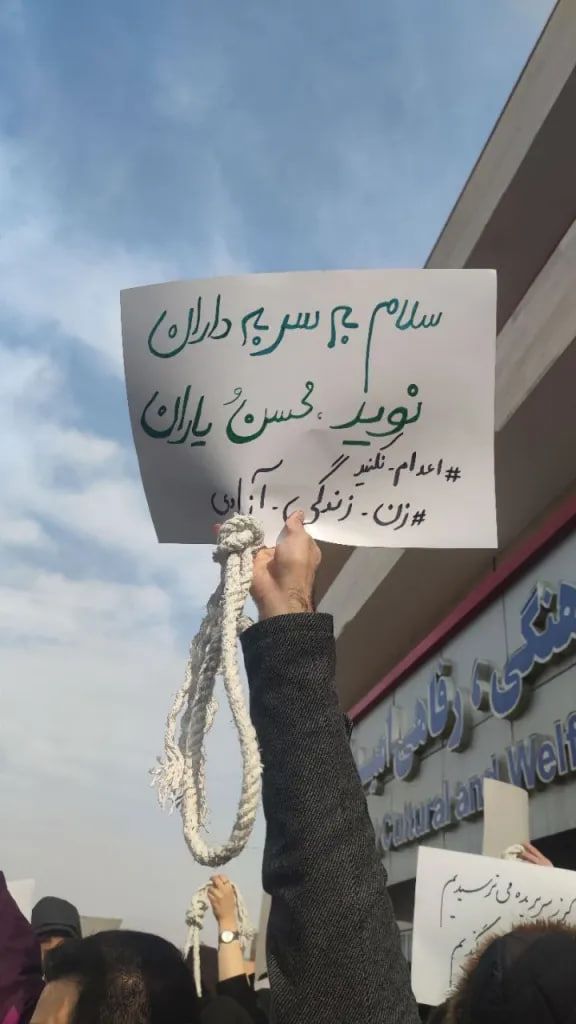 سلام به سر به داران
نوید، محسن ُ یاران
#اعدام_نکنید
#زن_زندگی_آزادی
هنگی، رفاهی امی
Cultural and Welf
سر بریده می ترسیدیم